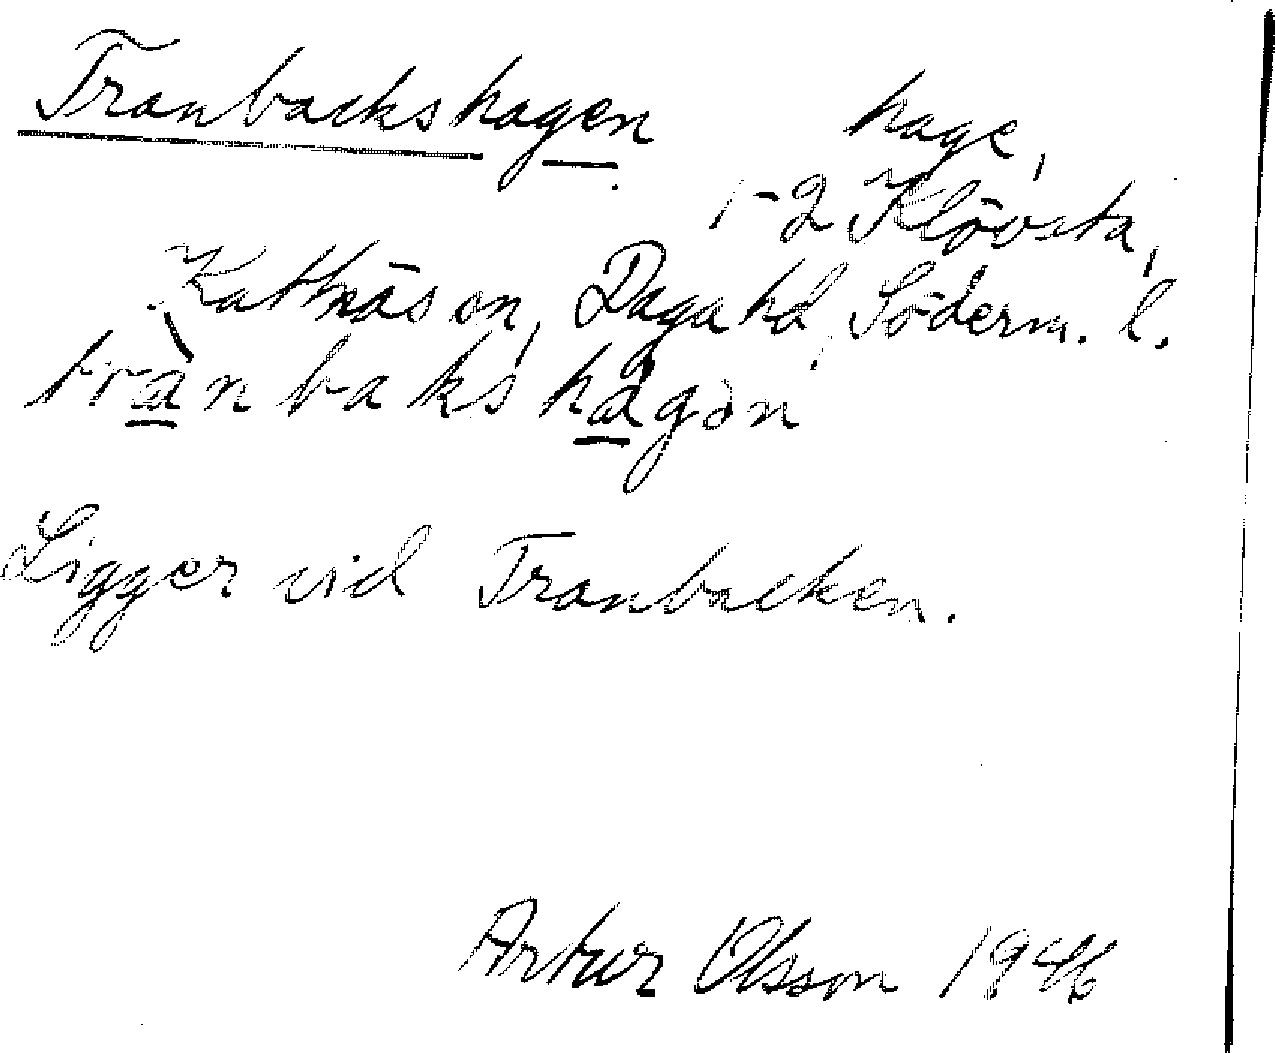 Tranbackshagen hage,
1-2 Klövsta,
Kattnäs sn, Daga hd, Söderm. l.
trànbakshágən
Ligger vid Tranbacken.
Artur Olsson 1946